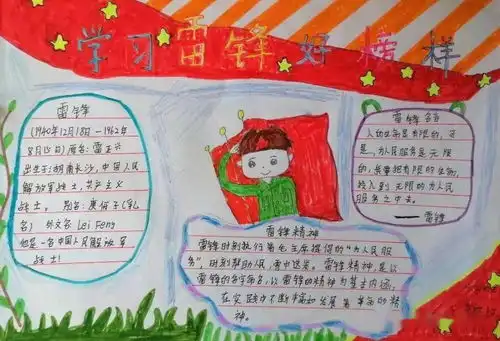 学习雷锋好榜样
雷锋
(1940年12月18日—1962年
8月15日)原名:雷正兴
出生于:湖南长沙,中国人民
解放军战士,共产主义
战士。别名:庚伢子(乳
名) 外文名 Lei Feng
他是一名中国人民解放军
战士!
雷锋精神
雷锋时刻执行着毛主席提倡的"为人民服
务",时刻帮助人民,雪中送炭。雷锋精神,是以
雷锋的名字命名,以雷锋的精神为基本内涵,
在实践中不断丰富和发展着革命的精
神。
雷锋名言
人的生命是有限的,可
是,为人民服务是无限
的,我要把有限的生命,
投入到无限的为人民
服务之中去。
——雷锋